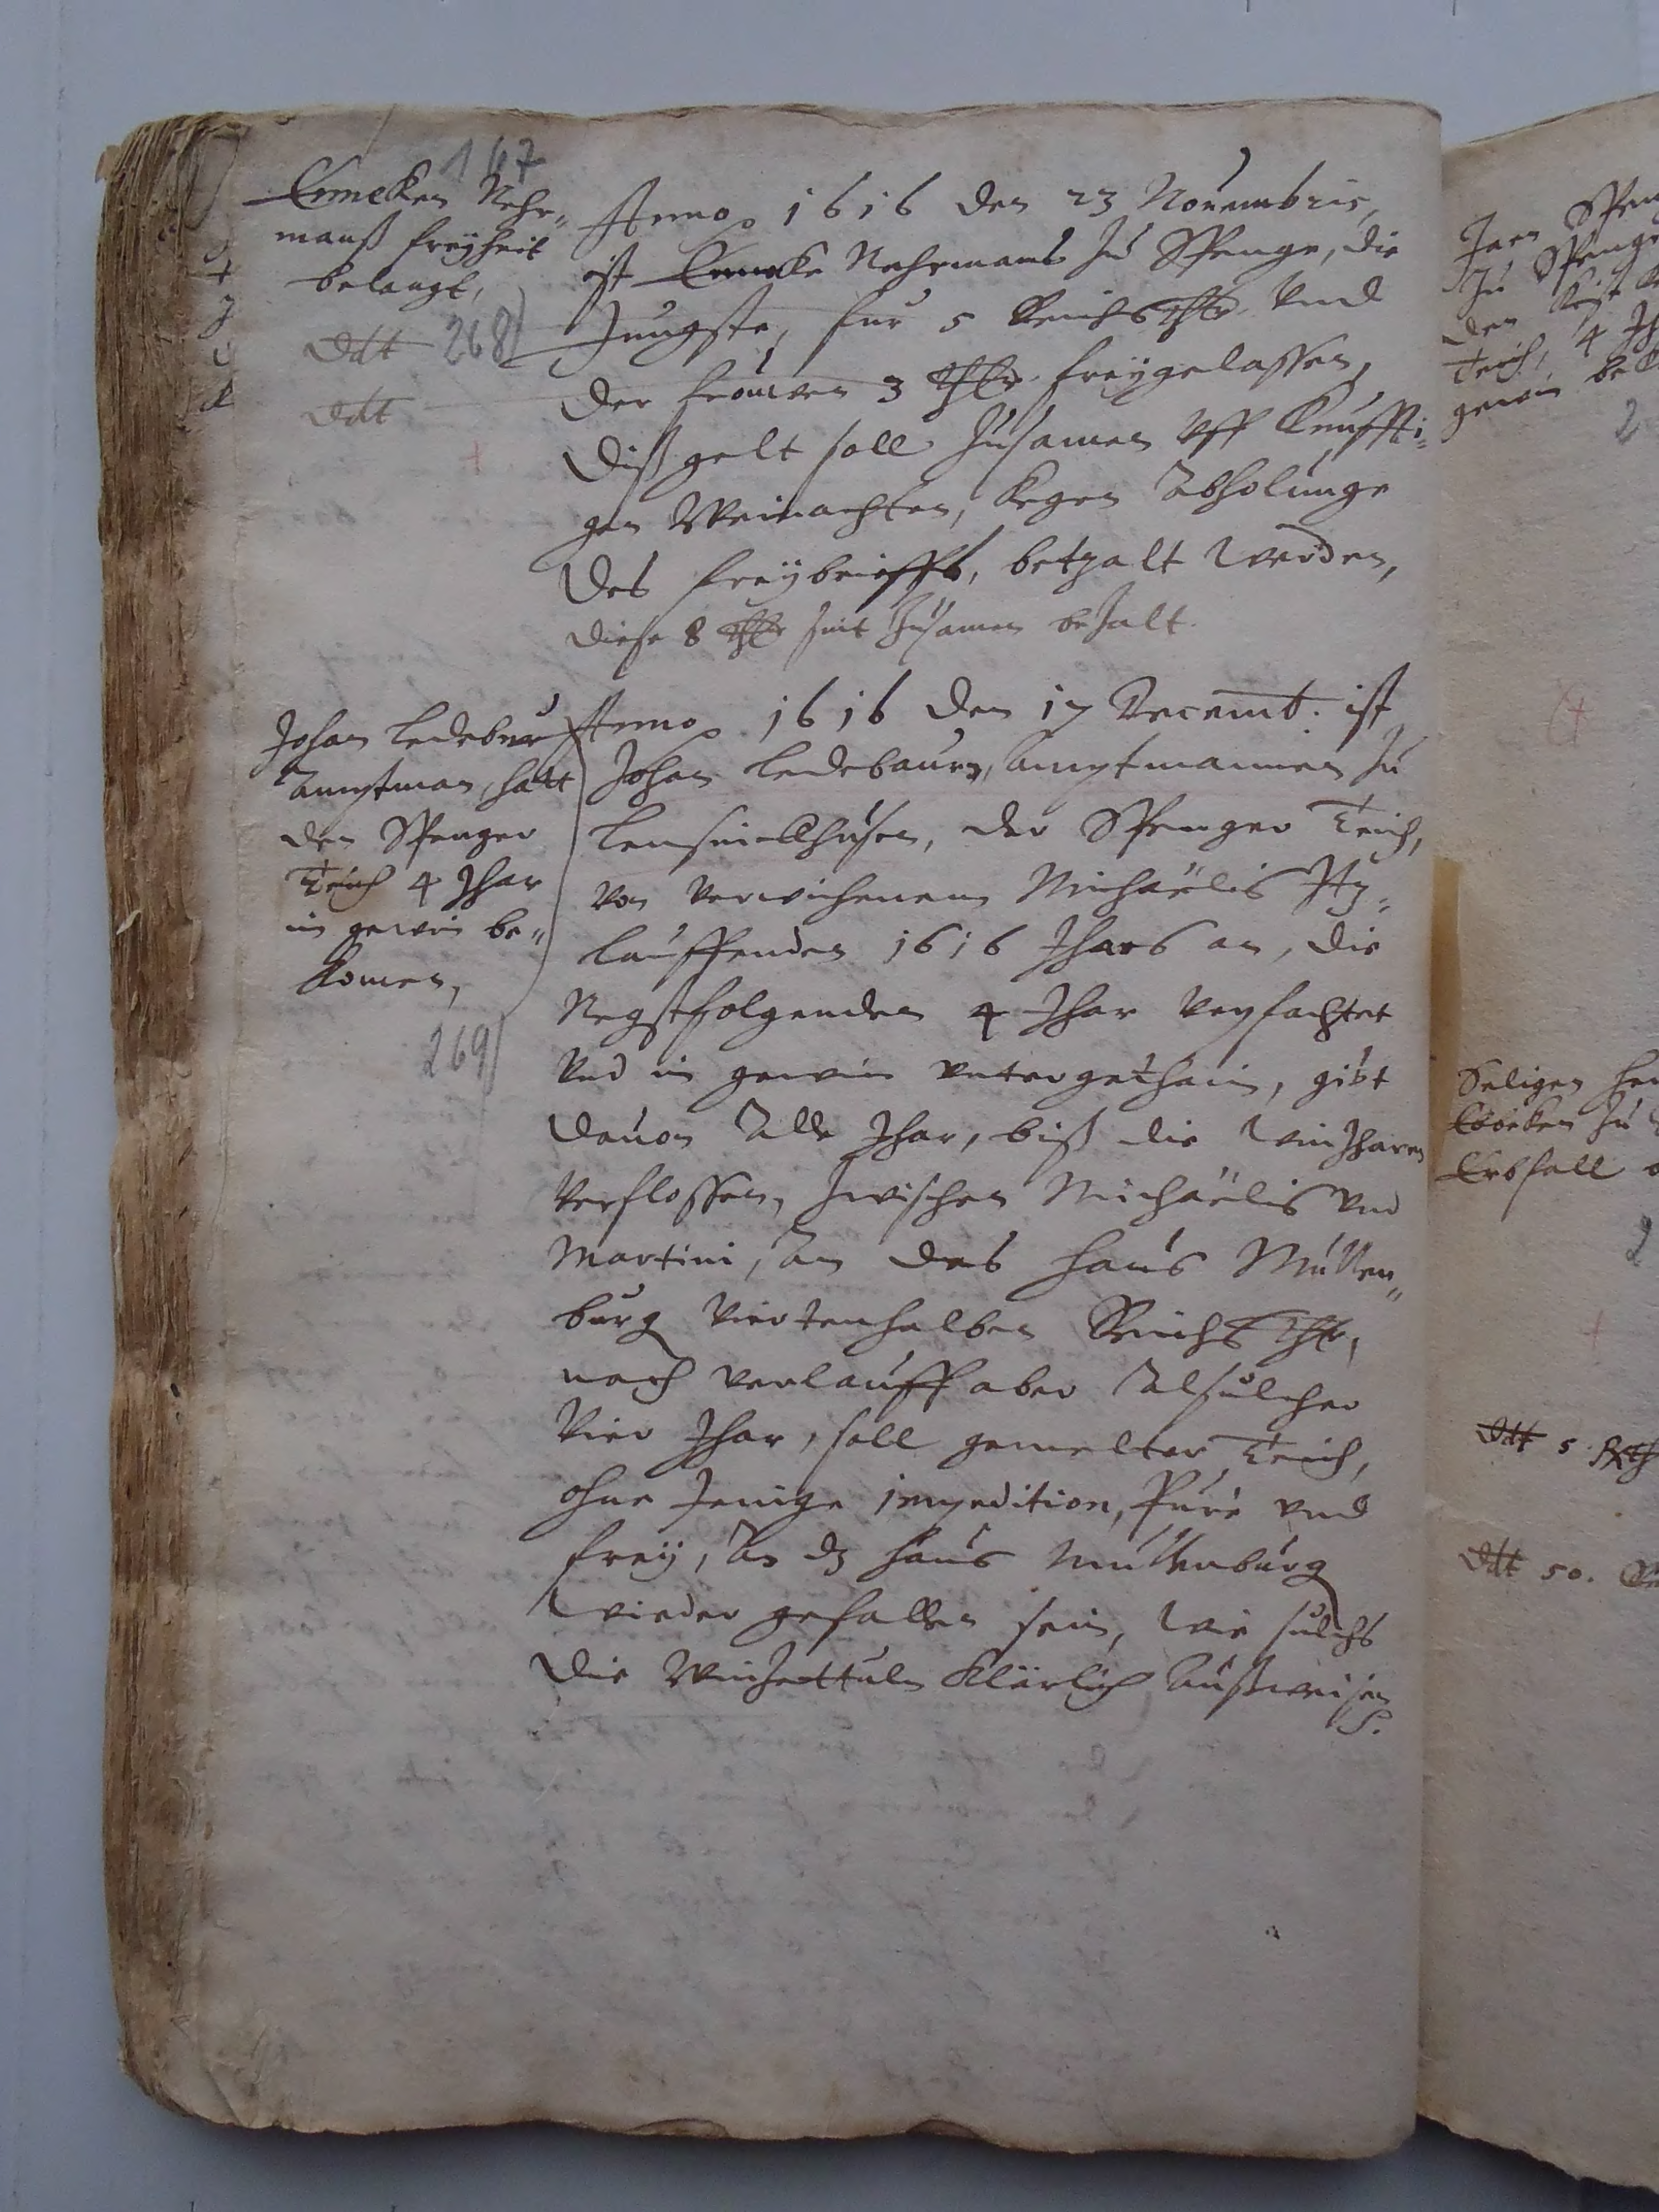 167
Ermeken Nehr„
manß freÿheit
belangt,
268
ddt
ddt
Anno 1616 den 23 Nouembris,
ist Ermeke Nehrmans zu Spenge, die
Jungste, fur 5 Reichsthlr. vnd
der frouwen 3 thlr. freÿgelassen,
Diß gelt soll zusamen vff kunffti„
gen Weinachten, kegen Abholunge
des freÿbrieffs, betzalt werden,
Diese 8 thlr sint zusamen bezalt.
Johan Ledebur
Amptman, hatt
den Spenger
Teich 4 Jhar
in gewin be„
komen,
269
Anno 1616 den 17 Decemb. ist
Johan Ledebaurn, Amptmannen zu
der Spenger Teich,
von verwichenem Michaëlis Itz„
lauffenden 1616 Jhars an, die
Negstfolgenden 4 Jhar verpfachtet
vnd in gewin vntergethain, gibt
dauon Alle Jhar, biß die winJharen
verflossen, zwischen Michaëlis vnd
Martini, An das hauß Mullen„
burg viertenhalben Reichsthlr,
nach verlauff aber Alsulcher
vier Jhar, soll gemelter Teich,
ohne Jenige impedition, Pure vnd
freÿ, An dz hauß Mullenburg
wieder gefallen sein, wie sulchs
die Winzettuln klärlich außweisen
S.
Jaen Speng
zu Spenge
den
Teich, 4 Jh
gewin bek
Seligen Her
zu
Erbfall
ddt 5. Rth
ddt 50.